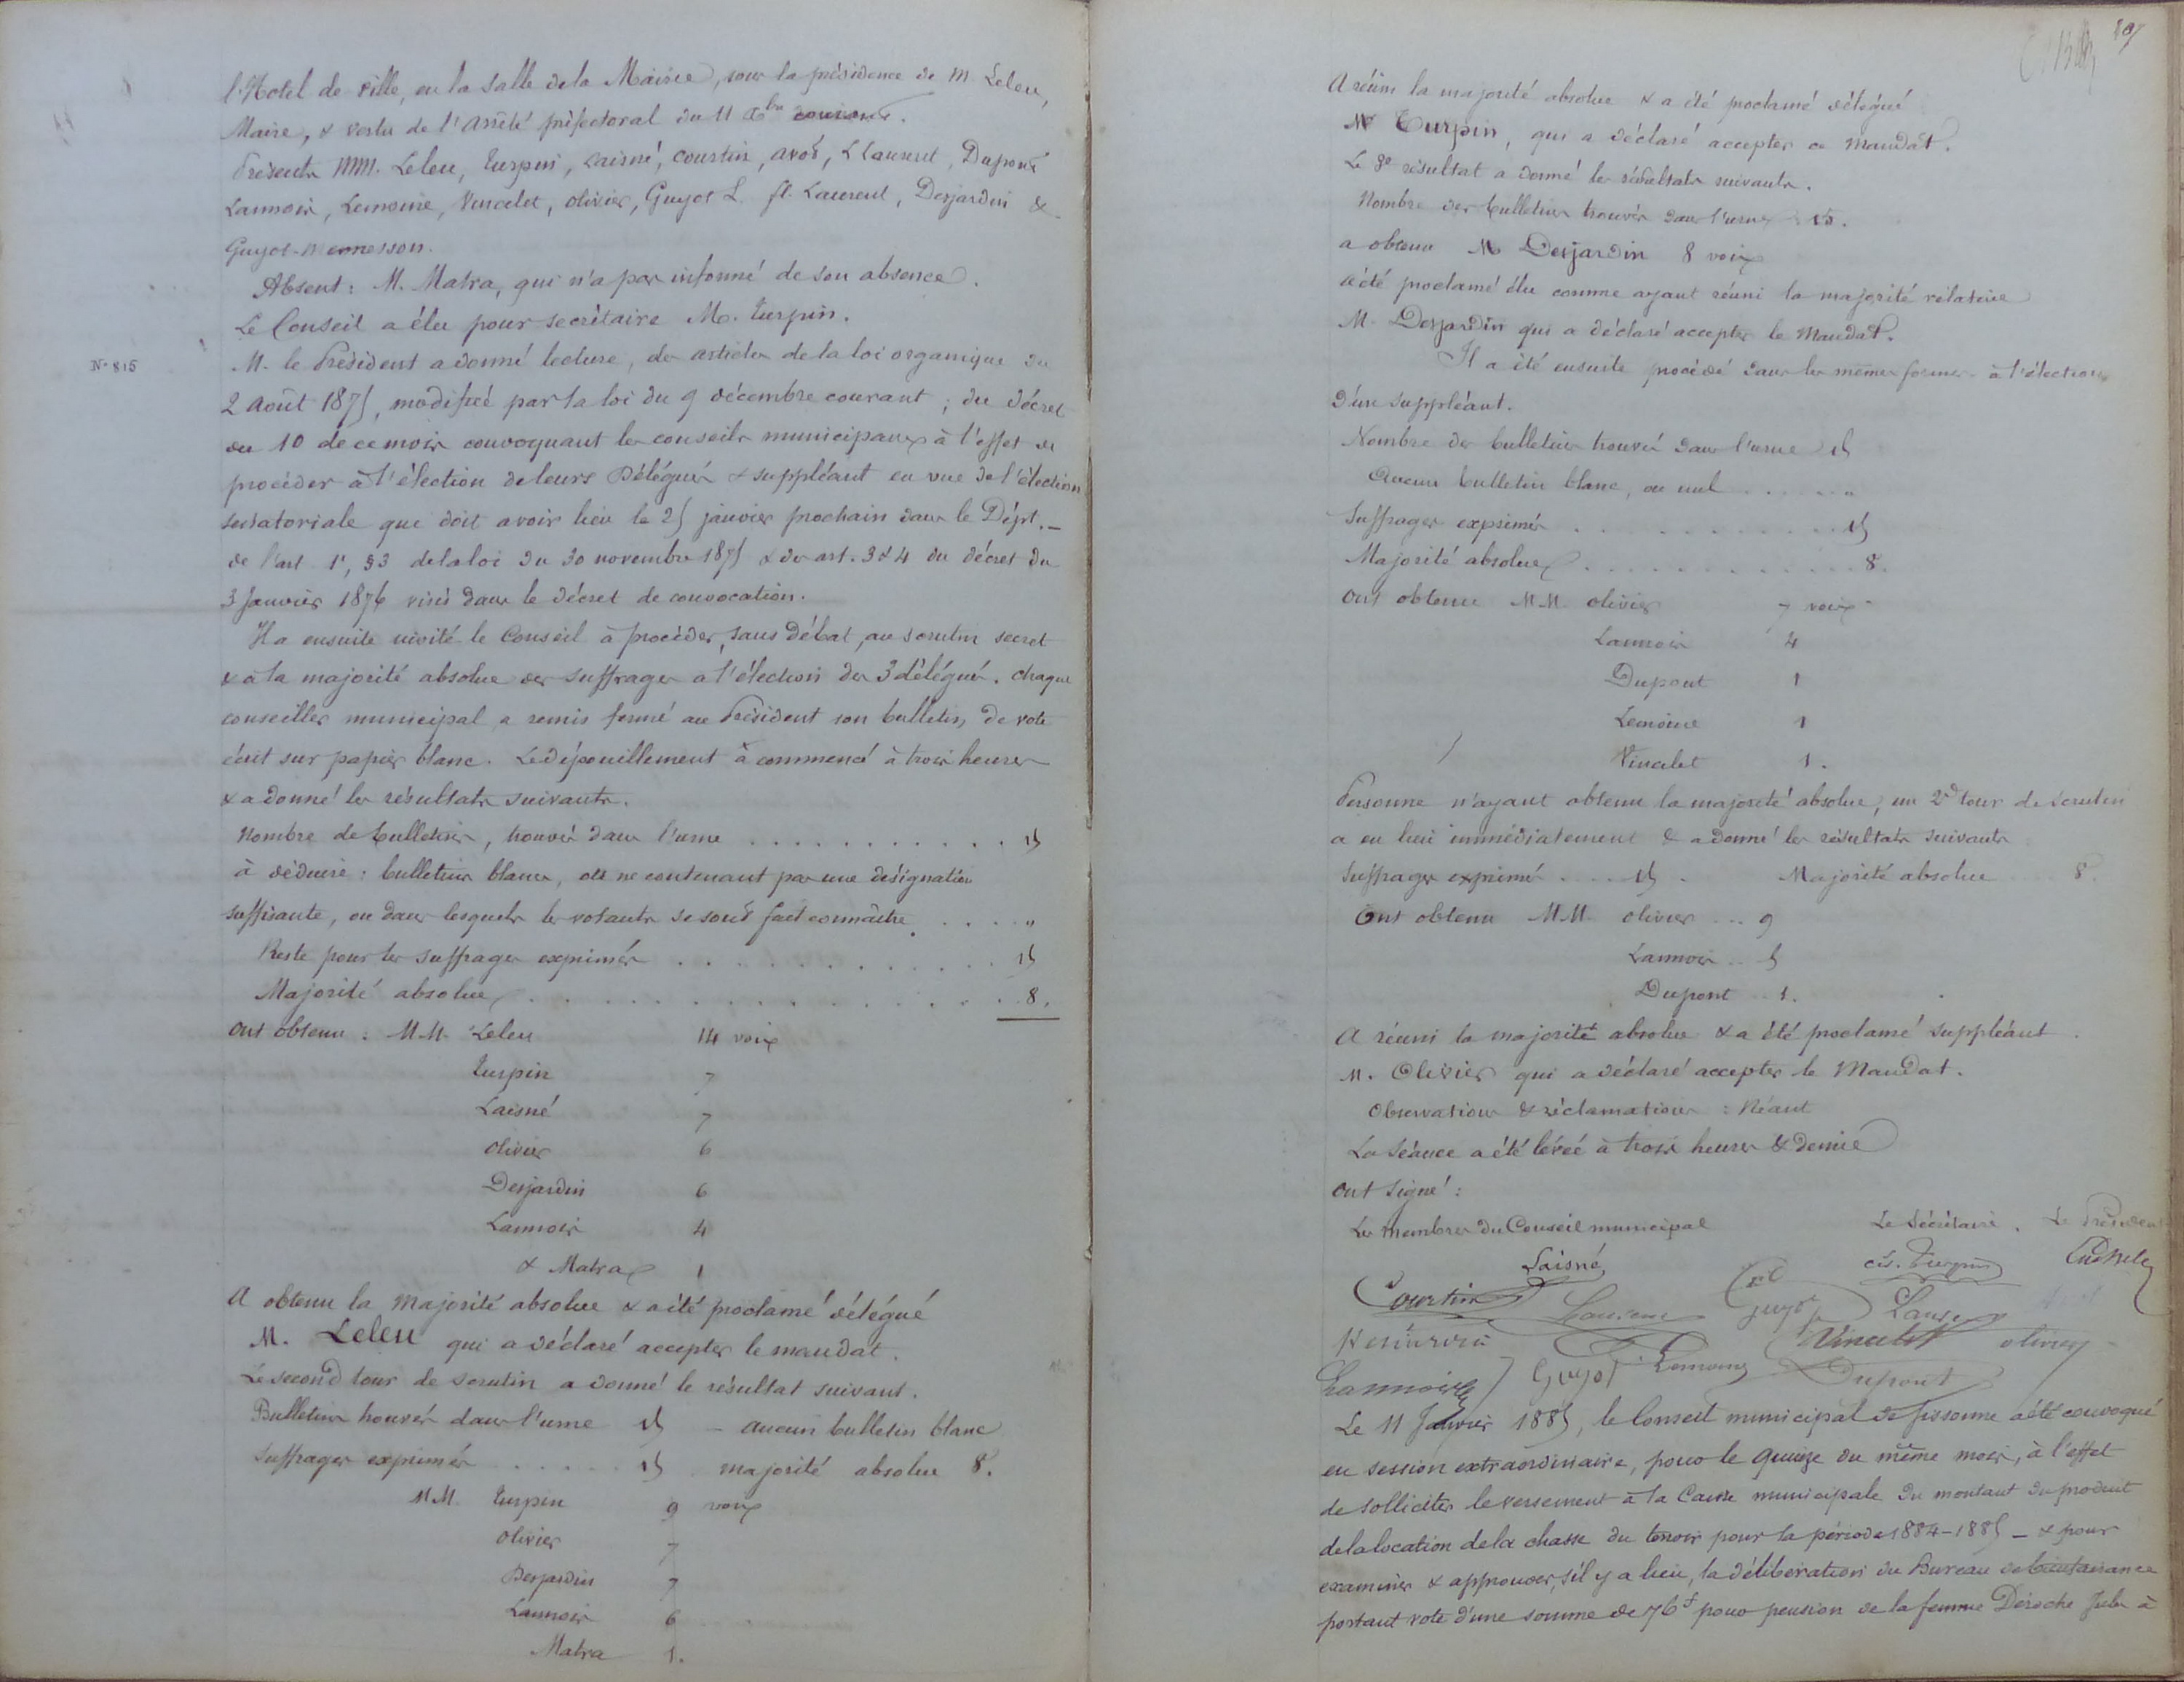 l'Hotel de Ville, en la salle de la Mairie, sous la présidence de M. Leleu,
Maire, & vertu de l'arrêté préfectoral du 11 Xbre courant.
Présents MM. Leleu, Turpin, Laisné, Courtin, L Laurent, Dupont
Lannois, Lemoine, Vincelet, Olivier, Guyot L. fl. Laurent, Desjardin &
Guyot-Mennesson.
Absent : M. Matra, qui n'a pas informé de son absence.
Le Conseil a élu pour secrétaire M. Turpin.
N° 815
M. le Président a donné lecture, des articles de la loi organique du
2 août 1875, modifiée par la loi du 9 décembre courant ; du décret
du 10 de ce mois convoquant les conseils municipaux à l'effet de
procéder à l'élection de leurs Délégués & suppléant en vue de l'élection
senatoriale qui doit avoir lieu le 25 janvier prochain dans le Dépt. –
de l'art 1r, §3 de la loi du 30 novembre 1875 & des art. 3 & 4 du décret du
3 Janvier 1876 visés dans le décret de convocation.
Il a ensuite invité le Conseil à procéder, sans débat, au scrutin secret
& à la majorité absolue des suffrages à l'élection des 3 délégués. Chaque
conseiller municipal a remis fermé au Président son bulletin de vote
écrit sur papier blanc. Le dépouillement à commencé à trois heures
& a donné les résultats suivants.
Nombre de bulletins, trouvés dans l'urne . . . . . . . . . . . 15
à déduire : bulletins blancs, ou ne contenant pas une désignation
suffisante, ou dans lesquels les votants se sont fait connaître . . . . "
Reste pour les suffrages exprimés . . . . . . . . . . . 15
Majorité absolue . . . . . . . . . . . . . . . . 8.
Ont obtenu : M.M. Leleu 14 voix
Turpin 7
Laisné 7
Olivier 6
Desjardin 6
Lannois 4
& Matra 1
A obtenu la majorité absolue & a été proclamé délégué
M. Leleu qui a déclaré accepter le mandat.
Le second tour de scrutin a donné le résultat suivant.
Bulletins trouvés dans l'urne 15 – aucun bulletin blanc
Suffrages exprimés . . . . . 15 majorité absolue 8.
M.M. Turpin 9 voix
Olivier 7
Desjardin 7
Lannois 6
Matra 1.
A réuni la majorité absolue & a été proclamé délégué
Mr Turpin, qui a déclaré accepter ce mandat.
Le 3e résultat a donné les résultats suivants.
Nombre des bulletins trouvés dans l'urne 15.
a obtenu M Desjardin 8 voix
a été proclamé élu comme ayant réuni la majorité relative
M. Desjardin qui a déclaré accepter le Mandat.
Il a été ensuite procédé dans les mêmes formes à l'élection
d'un suppléant.
Nombre des bulletins trouvés dans l'urne 15
Aucun bulletin blanc, ou nul . . . . . "
Suffrages exprimés . . . . . . . . . . . 15
Majorité absolue . . . . . . . . . . . 8.
Ont obtenu M.M. Olivier 7 voix
Lannois 4
Dupont 1
Lemoine 1
Vincelet 1.
Personne n'ayant obtenu la majorité absolue, un 2d tour de scrutin
a eu lieu immédiatement & a donné les résultats suivants
Suffrages exprimés . . . 15 . Majorité absolue 8.
Ont obtenu M.M. Olivier . . . 9
Lannois . . 5
Dupont . . 1.
A réuni la majorité absolue & a été proclamé suppléant
M. Olivier qui a déclaré accepter le Mandat.
Observations & réclamations : Néant
La Séance a été lévée à trois heures & demie
Ont signé :
Les membres du Conseil municipal Le Sécrétaire. Le Président
Laisné Turpin
Courtin Laurent Guyot
Vincelet Olivier
Lannois Guyot Lemoine Dupont
Le 11 Janvier 1885, le Conseil municipal de Sissonne a été convoqué
en session extraordinaire, pour le quinze du même mois, à l'effet
de solliciter le versement à la Caisse municipale du montant du produit
de la location de la chasse du terroir pour la période 1884–1885 – & pour
examiner & approuver, s'il y a lieu, la délibération du Bureau de bienfaisance
portant vote d'une somme de 76f pour pension de la femme Déroche Jules à